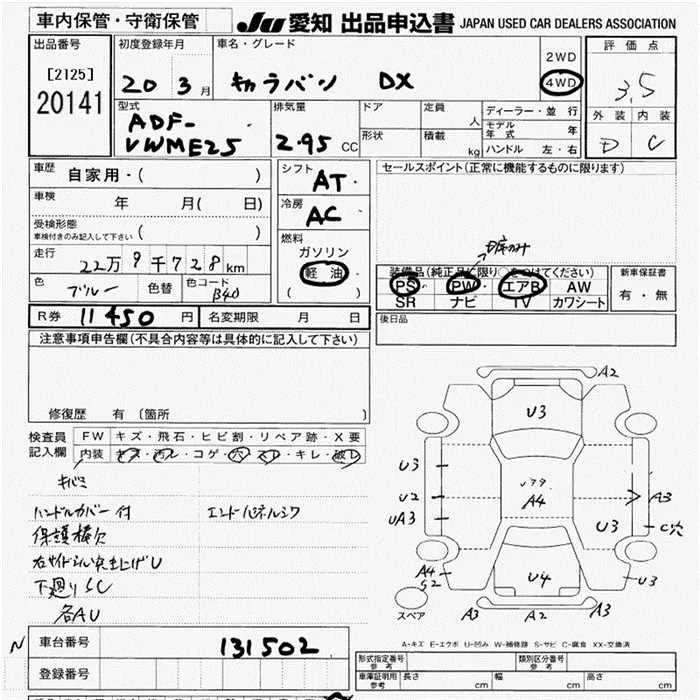 車内保管・守衛保管
JU 愛知 出品申込書 JAPAN USED CAR DEALERS ASSOCIATION
出品番号
[2125]
20141
初度登録年月
20 3月
車名・グレード
キャラバン DX
2WD
4WD
評価点
3.5
外装 内装
D C
型式
ADF-
VWME25
排気量
2.95 CC
ドア
形状
定員 人
積載 kg
ディーラー・並行
モデル年式 年
ハンドル 左・右
車歴 自家用・( )
車検 年 月( 日)
受検形態
車検付きのみ記入して下さい ( )
走行 22万9千728km
色 ブルー
色替
色コード B40
シフト AT
冷房 AC
燃料
ガソリン
軽油
( )
セールスポイント(正常に機能するものに限ります)
装備品(純正品に限り○をつけてください)
PS PW エアB AW
SR ナビ TV カワシート
新車保証書
有・無
後日品
R券 11450円
名変期限 月 日
注意事項申告欄(不具合内容等は具体的に記入して下さい)
修復歴 有 (箇所 )
検査員記入欄
FW キズ・飛石・ヒビ割・リペア跡・X要
内装 キズ・汚レ・コゲ・穴・スレ・キレ・破レ
キバミ
ハンドルカバー付 エンドパネルシワ
下廻りSC
各AU
A2
U3
U3
U2
UA3
A4
A3
U3
C穴
A4
S2
U4
U3
スペア
A3
A2
A3
A-キズ E-エクボ U-凹み W-補修跡 S-サビ C-腐食 XX-交換済
N
車台番号 131502
登録番号
形式指定番号 参考
類別区分番号 参考
車庫証明用 参考
長さ cm
幅 cm
高さ cm